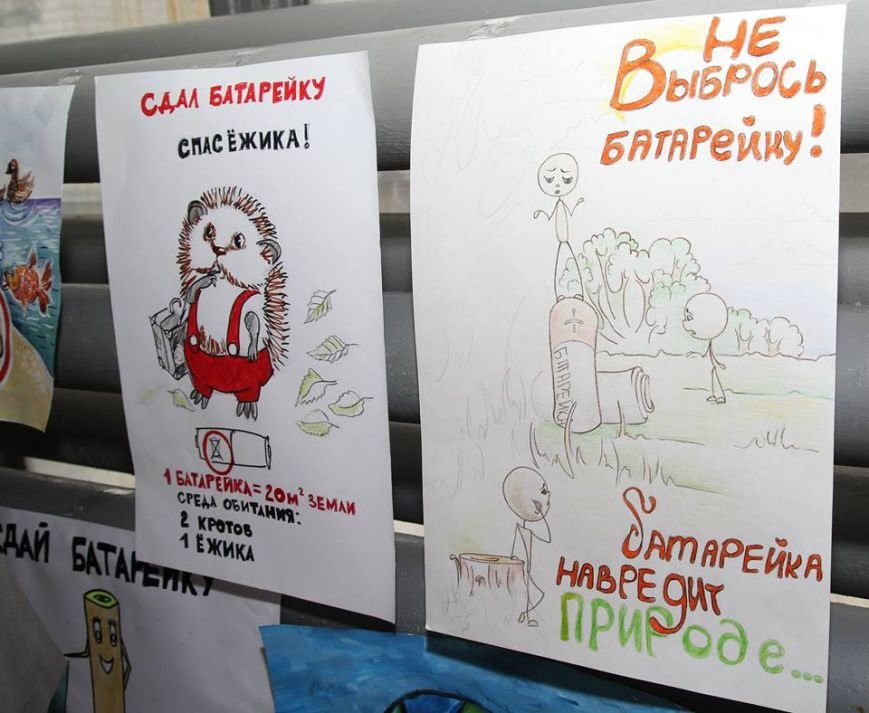 СДАЛ БАТАРЕЙКУ
СПАС ЁЖИКА!
1 БАТАРЕЙКА = 20м² ЗЕМЛИ
СРЕДА ОБИТАНИЯ:
2 КРОТОВ
1 ЁЖИКА
НЕ
ВЫБРОСЬ
БАТАРЕЙКУ!
+
БТАРЕЙК
БАТАРЕЙКА
НАВРЕДИТ
ПРИРОДЕ...
СДАЙ БАТАРЕЙКУ